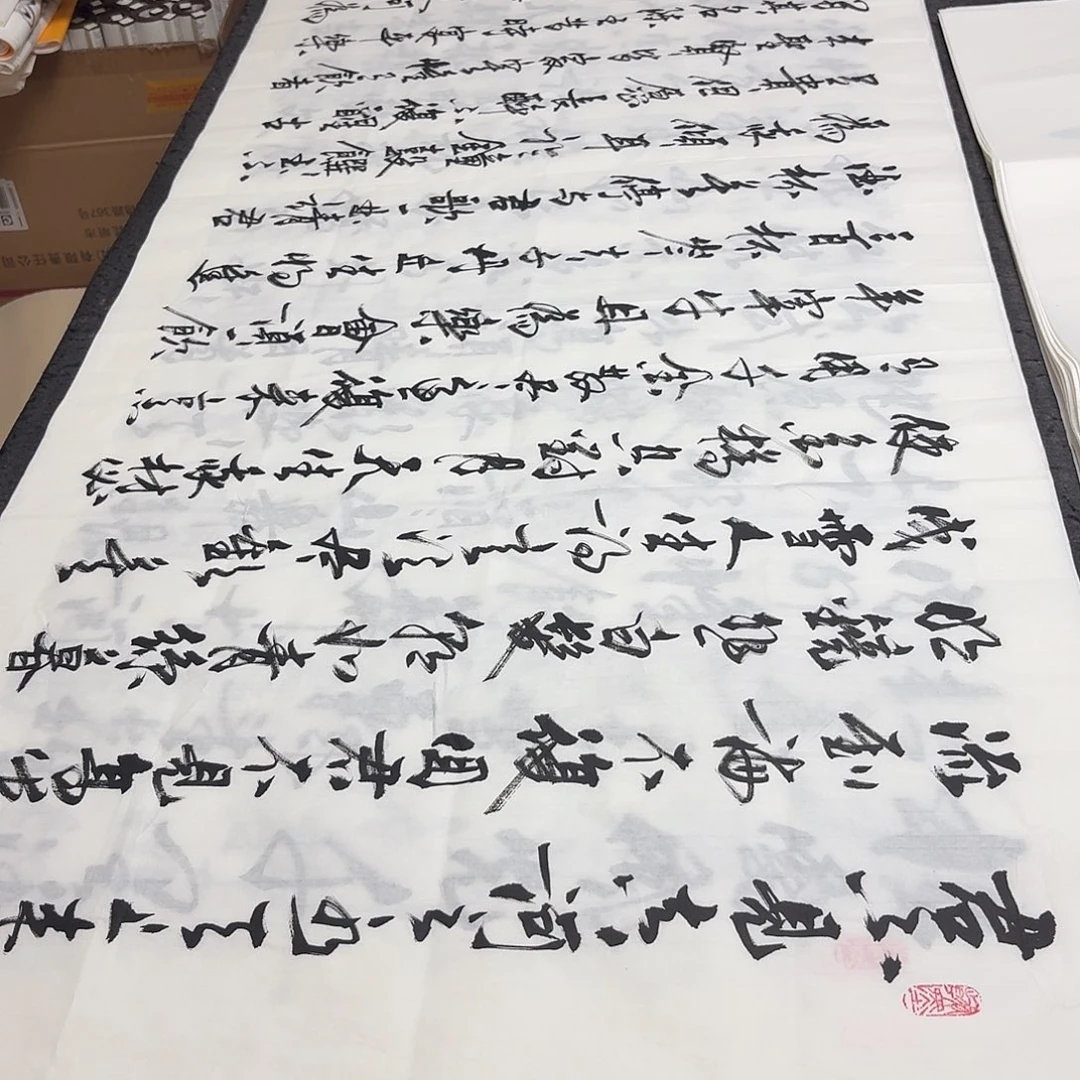 君不見黄河之水天上来
流到海不復回君不見高堂
明鏡悲白髮朝如青絲暮
成雪人生得意須盡歡莫
使金樽空對月天生我材必
有用千金散盡還復來烹
羊宰牛且為樂會須一飲
三百杯岑夫子丹丘生將進
酒杯莫停與君歌一曲請君
為我傾耳聽鐘鼓饌玉不
足貴但願長醉不復醒古
來聖賢皆寂寞惟有飲者
留其名陳王昔時宴平樂